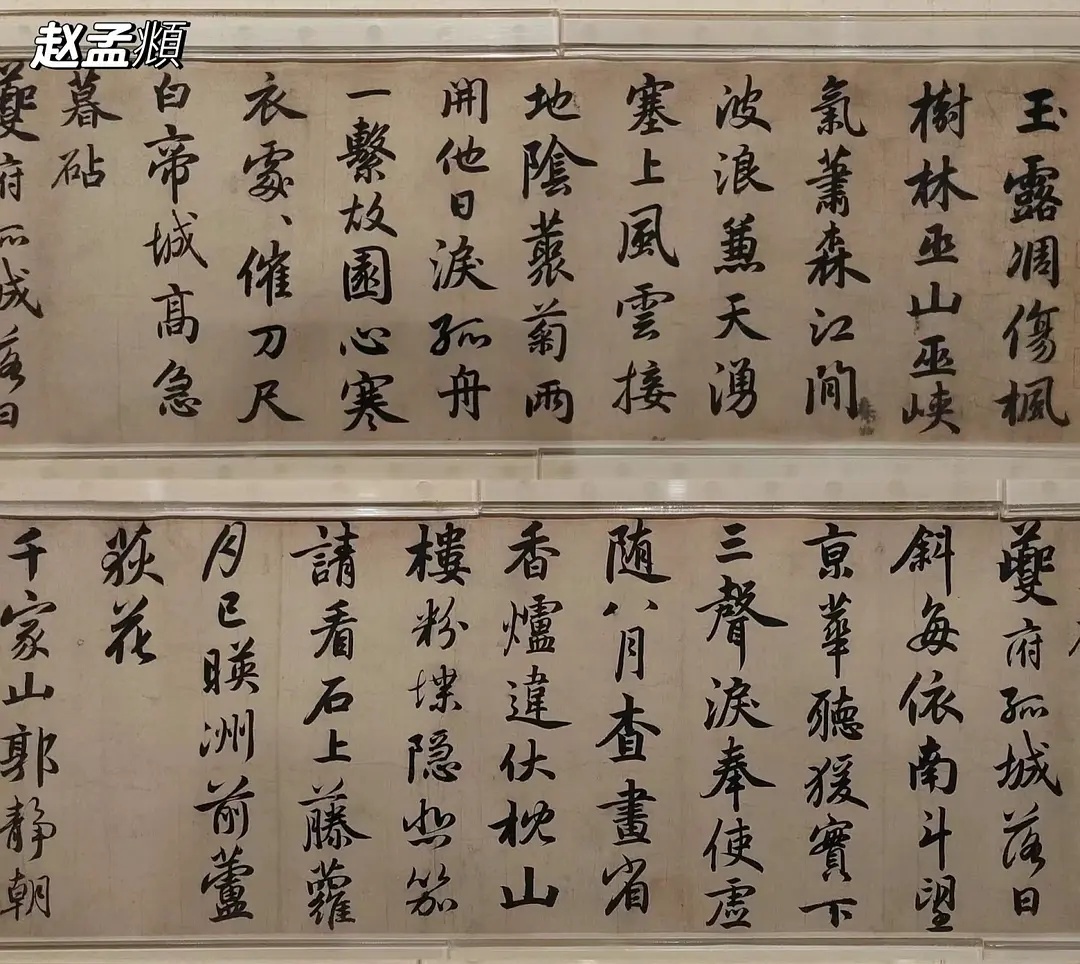 赵孟頫
玉露凋傷楓
樹林巫山巫峽
氣蕭森江間
波浪兼天湧
塞上風雲接
地陰叢菊兩
開他日淚孤舟
一繫故園心寒
衣處〻催刀尺
白帝城高急
暮砧
夔府孤城落日
夔府孤城落日
斜每依南斗望
京華聽猨實下
三聲淚奉使虛
随八月查畫省
香爐違伏枕山
樓粉堞隐悲笳
請看石上藤蘿
月已暎洲前蘆
荻花
千家山郭静朝